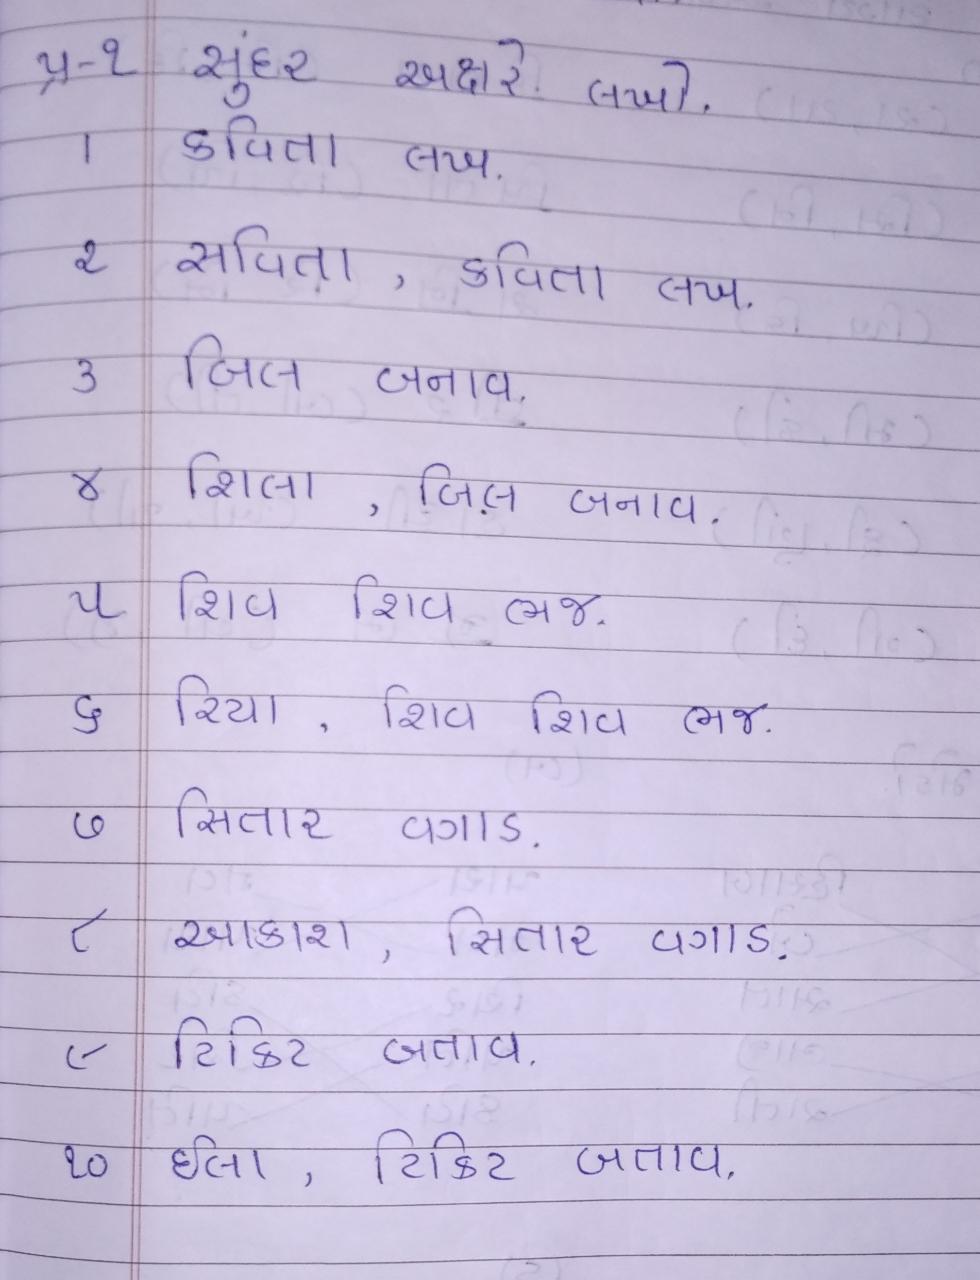 પ્ર-૧ સુંદર અક્ષરે લખો.
૧ કવિતા લખ.
૨ સવિતા, કવિતા લખ.
૩ બિલ બનાવ.
૪ શિલા, બિલ બનાવ.
૫ શિવ શિવ ભજ.
૬ રિયા, શિવ શિવ ભજ.
૭ સિતાર વગાડ.
૮ આકાશ, સિતાર વગાડ.
૯ ટિકિટ બતાવ.
૧૦ ઈલા, ટિકિટ બતાવ.